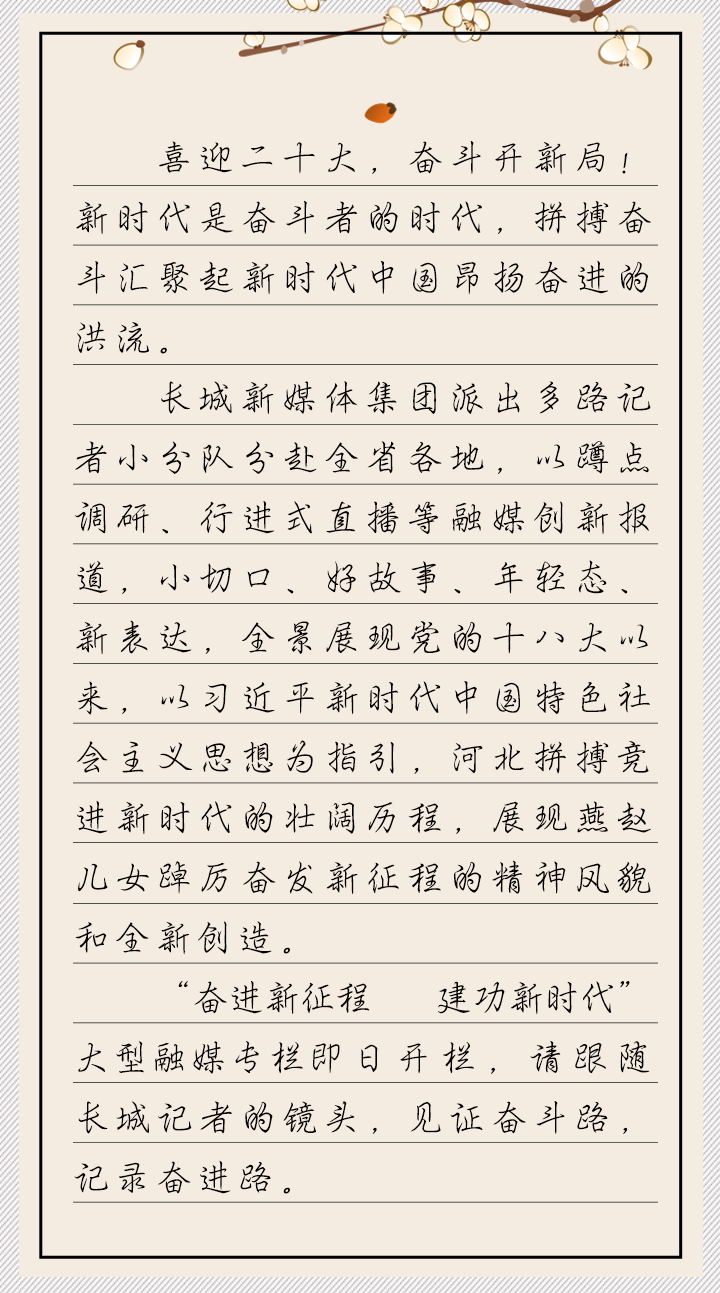 喜迎二十大，奋斗开新局！
新时代是奋斗者的时代，拼搏奋
斗汇聚起新时代中国昂扬奋进的
洪流。
长城新媒体集团派出多路记
者小分队分赴全省各地，以蹲点
调研、行进式直播等融媒创新报
道，小切口、好故事、年轻态、
新表达，全景展现党的十八大以
来，以习近平新时代中国特色社
会主义思想为指引，河北拼搏竞
进新时代的壮阔历程，展现燕赵
儿女踔厉奋发新征程的精神风貌
和全新创造。
“奋进新征程　建功新时代”
大型融媒专栏即日开栏，请跟随
长城记者的镜头，见证奋斗路，
记录奋进路。